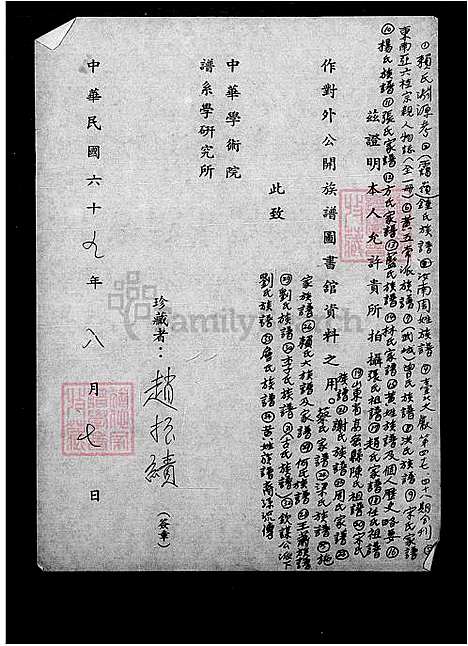 ①賴氏淵源考②(霞葛)鍾氏族譜③汝南周姓族譜④臺北文獻第四七四八期合刊⑤
東南亞六桂宗親人物誌(全一冊)⑥黃五常派族譜⑦(武城)曾氏族譜⑧洪氏族譜⑨宋氏家譜
⑩楊氏族譜⑪張氏家譜⑫方氏家譜⑬ 氏家譜⑭林氏家譜⑮黃姓族譜及個人歷史略要⑯
茲證明本人允許貴所拍攝張氏祖譜⑰趙氏家譜⑱任氏祖譜
⑲山東省 縣陳氏祖譜⑳宋氏
族譜 謝氏族譜 周氏家譜
作對外公開族譜圖書館資料之用。
蔡氏家譜 梁氏族譜 施
家族譜 賴氏大族譜及家譜 何氏族譜 王蕭族譜
劉氏族譜 李氏族譜 氏族譜 欽謀公派下
劉氏族譜 詹氏族譜 黃姓族譜 源流傳
此致
中華學術院
譜系學研究所
珍藏者：趙振績(簽章)
中華民國六十九年八月七日
FamilySearch